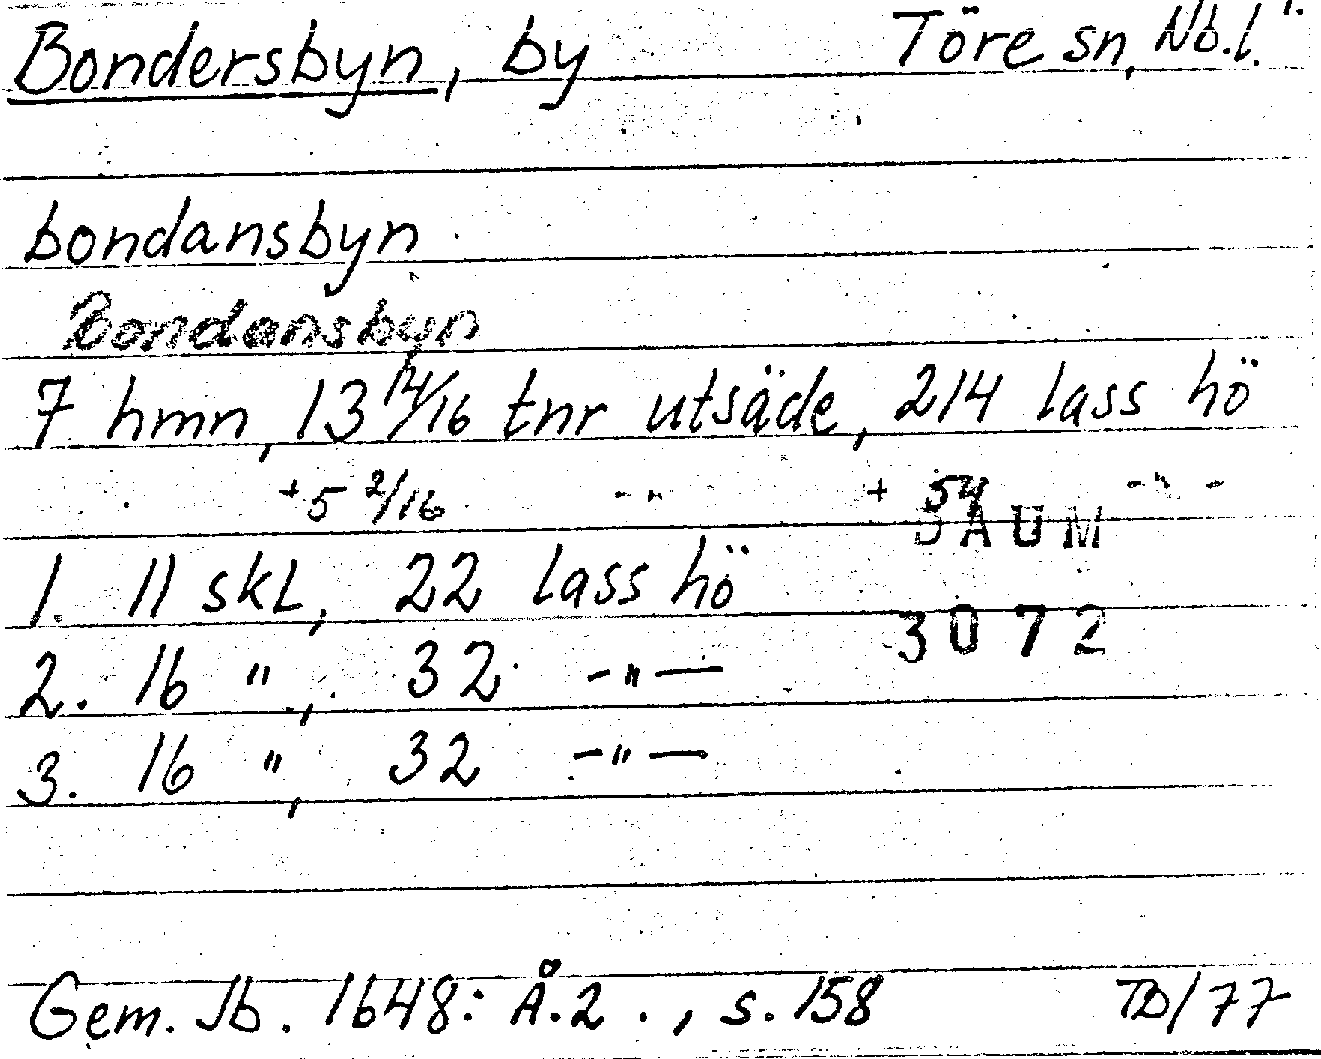 Bondersbyn, by Töre sn, Nb.l.
bondansbyn
Bondansbyn
7 hmn, 13 14/16 tnr utsäde, 214 lass hö
+5 2/16 -"- + 54 -"-
DAUM
1. 11 skl, 22 lass hö
3072
2. 16 ", 32 -"-
3. 16 ", 32 -"-
Gem. Jb. 1648: Å.2., s. 158 TD/77